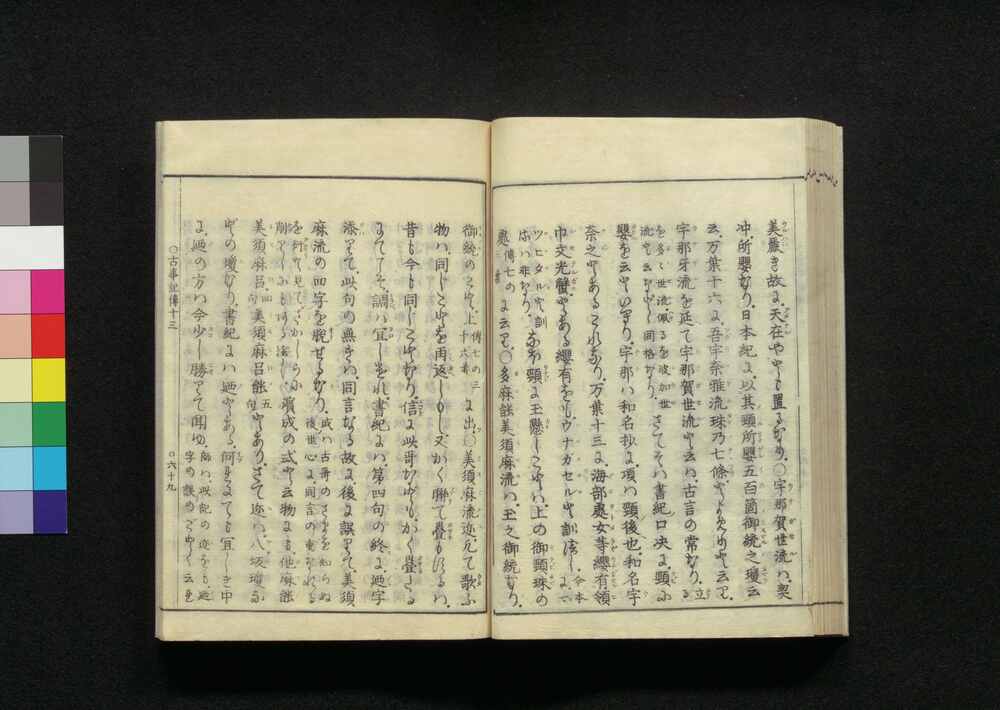 美麗き故に、天在やとも置るなり、○宇那賀世流は、契
沖、所嬰なり、日本紀に、以其頸所嬰五百箇御統之瓊云
云、万葉十六に、吾宇奈雅流珠乃七條とよめりと云り、
宇那牙流を延て宇那賀世流と云は、古言の常なり、立
を多々世流佩るを波加世
流と云など同格なり、さてそは書紀口决に、頸に
嬰を云といへり、宇那は和名抄に項は頸後也、和名宇
奈之とあるこれなり、万葉十三に、海部處女等纓有領
巾文光蟹とある纓有をも、ウナガセルと訓べし、今本
ツヒタルと訓
るは非なり、なほ頸に玉懸しことは、上の御頸珠の
處傳七の に云り、○多麻能美須麻流は、玉之御統なり、
御統のことも、上傳七の三
十六 に出、○美須麻流迩、凡て歌ふ
物は、同じことを再返しもし、又かく聯て疊もするは、
昔も今も同じことなり、信に此哥なども、かく疊ざる
にてこそ、調は宜しきを、書紀には、第四句の終に、廼字
添りて、此句の無きは、同言なる故に、後に誤りて、美須
麻流の四字を脱せるなり、或は古哥のさまをも知らぬ
後世心に、同言の重なれる
を 見て、さかしらに
削りしにもあるべし、濱成の式と云物にも、他麻能
美須麻呂四
句美須麻呂能五
句とあり、さて迩は、八坂瓊な
どの瓊なり、書紀には廼とある、何れにても宜しき中
に、廼の方は今少し勝りて聞ゆ、
○古事記傳十三
○六十九